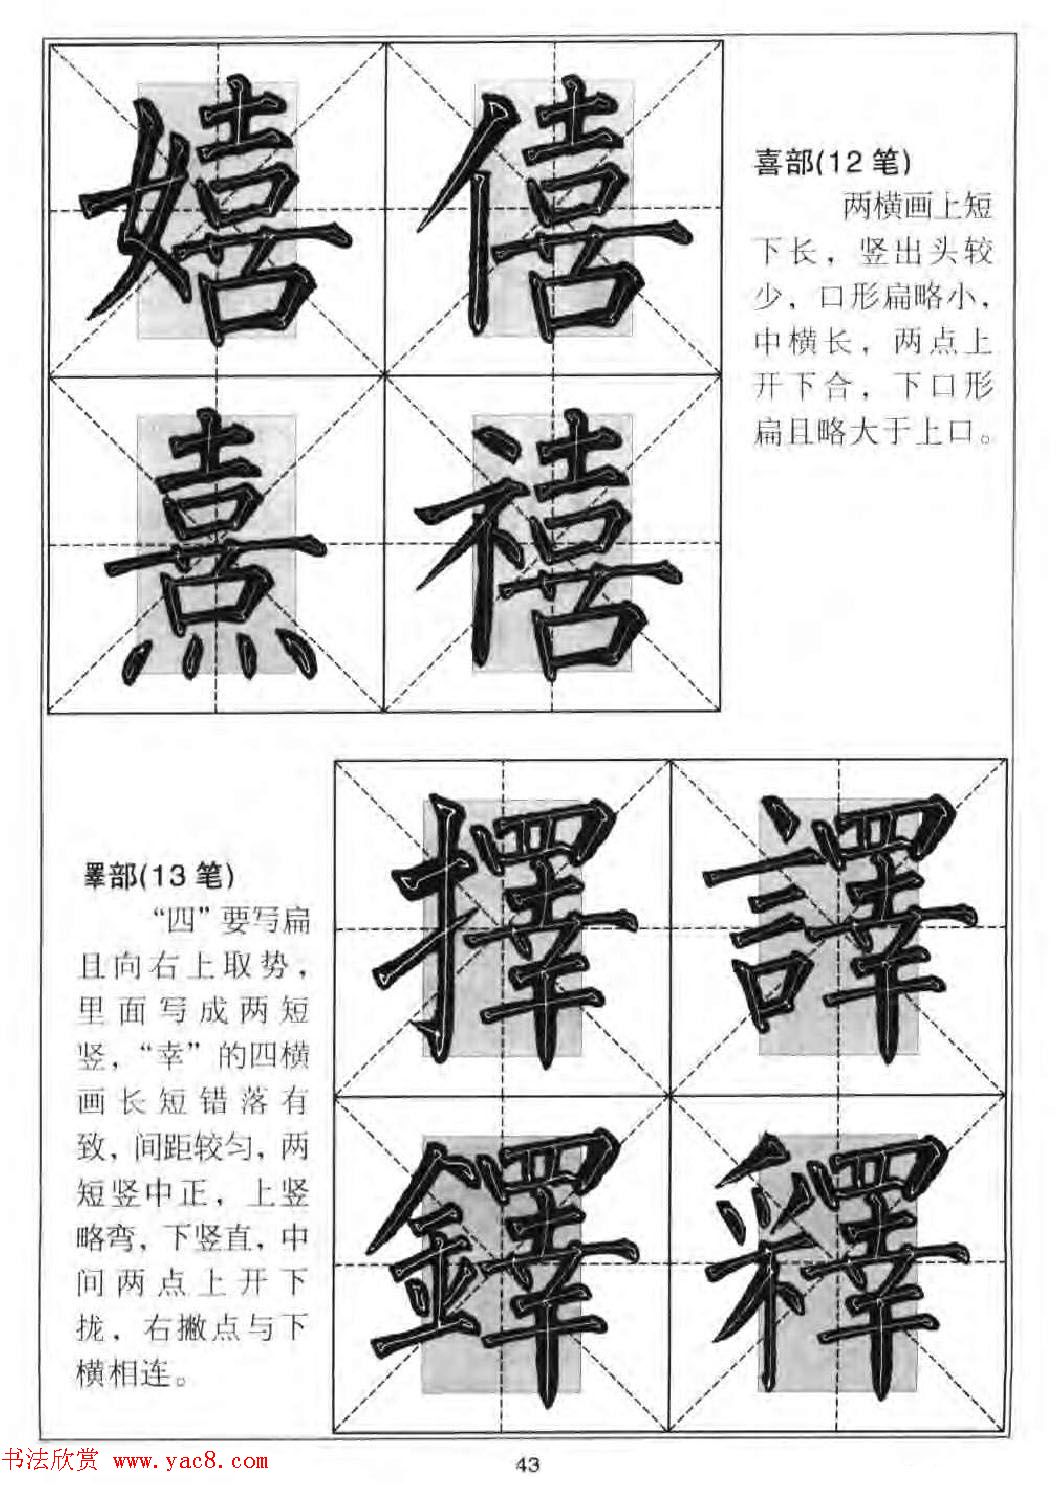 嬉 僖
熹 禧
喜部(12 笔)
两横画上短
下长，竖出头较
少，口形扁略小，
中横长，两点上
开下合，下口形
扁且略大于上口。
睪部(13 笔)
“四”要写扁
且向右上取势，
里面写成两短
竖，“幸”的四横
画长短错落有
致，间距较匀，两
短竖中正，上竖
略弯，下竖直，中
间两点上开下
拢，右撇点与下
横相连。
擇 譯
鐸 釋
书法欣赏 www.yac8.com
43